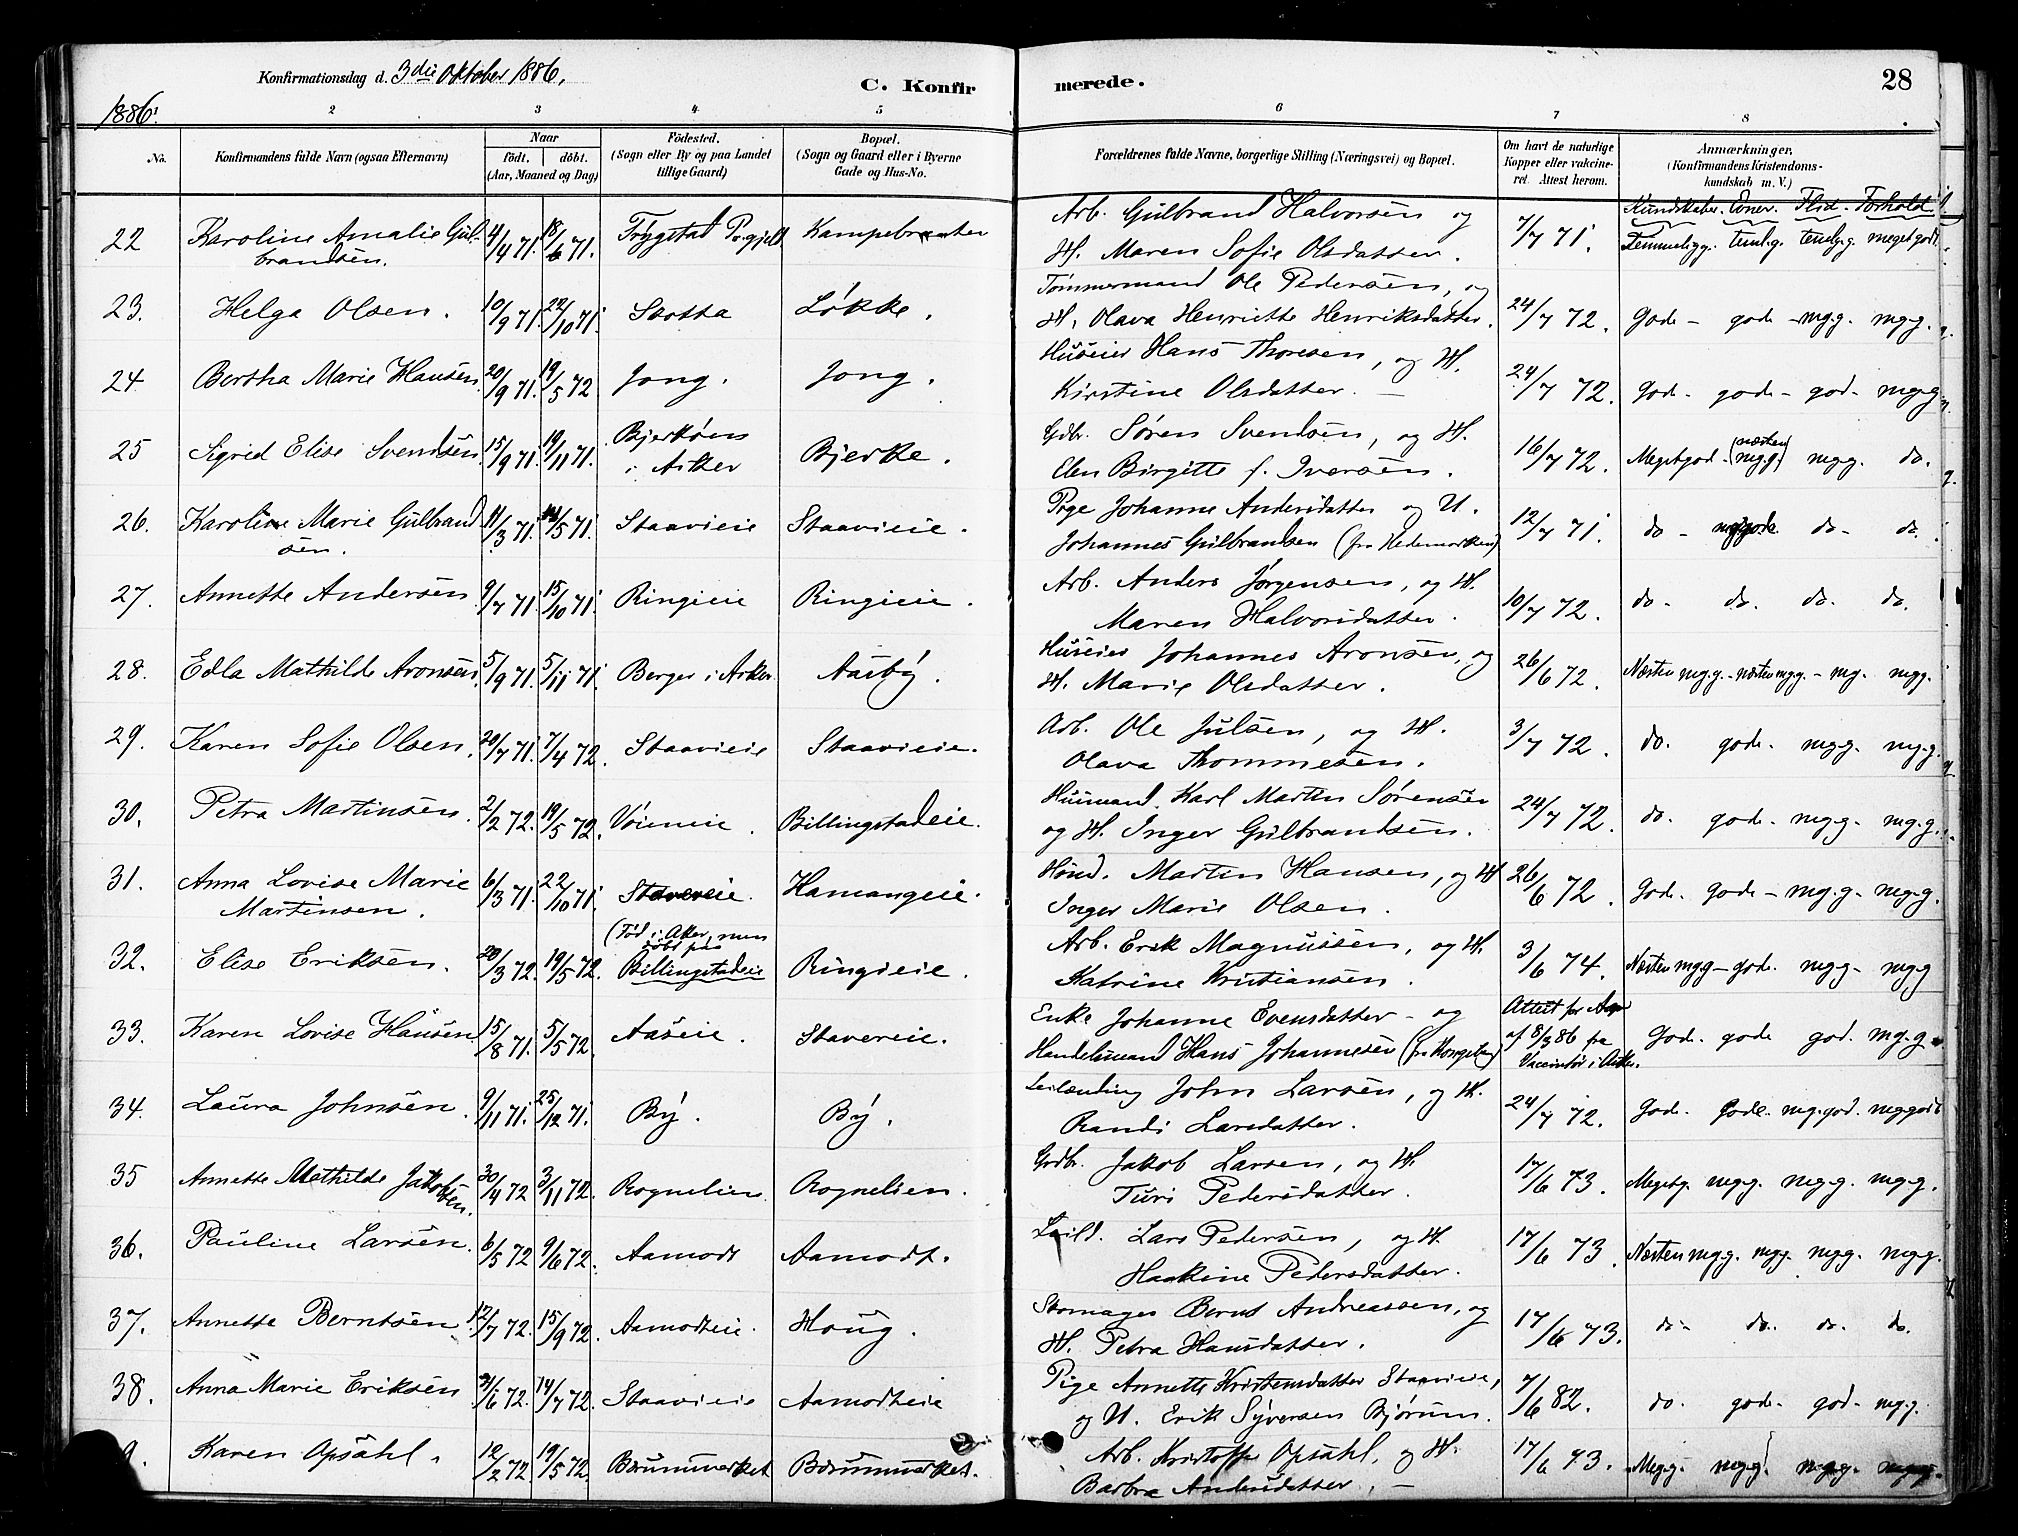 Konfirmationsdag d. 3die Oktober 1886.
C. Konfir
merede.
28
1886.
2 3 4 5 6 7 8
No.
Konfirmandens fulde Navn (ogsaa Efternavn)
Naar
födt. döbt.
(Aar, Maaned og Dag)
Födested.
(Sogn eller By og paa Landet
tillige Gaard)
Bopæl.
(Sogn og Gaard eller i Byerne
Gade og Hus-No.
Forældrenes fulde Navne, borgerlige Stilling (Næringsvei) og Bopæl.
Om havt de naturlige
Kopper eller vakcine-
ret. Attest herom.
Anmærkninger,
(Konfirmandens Kristendoms-
kundskab m. V.)
Kundskaber. Evner. Flid. Forhold.
22 Karoline Amalie Gul- 4/4 71. 18/6 71. Trygstad Prgjeld Kampebraaten Arb. Gulbrand Halvorsen og 7/7 71. Temmeligg. temlg. temlg. meget godt
brandsen. H. Maren Sofie Olsdatter.
23. Helga Olsen. 10/9 71. 22/10 71. Skotta Løkke. Tømmermand Ole Pedersen, og 24/7 72. God. - gode - mg.g. mg.g.
H. Olava Henriette Henriksdatter.
24. Bertha Marie Hansen 20/9 71. 19/5 72 Jong. Jong. Huseier Hans Thoresen, og H. 24/7 72. God. - gode - god. - mg.g
Kirstine Olsdatter. -
25 Sigrid Elise Svendsen 15/9 71. 19/11 71. Bjerkøen Bjerke. Gdbr. Søren Svendsen, og H. 16/7 72. Meget god. (næsten mg.g.) mg.g. do.
i Asker Elen Birgitte f. Iversen.
26. Karoline Marie Gulbrand 11/3 71. /5 71. Staavieie Staavieie. Pige Johanne Andersdatter og U. 12/7 71. do - gode do - do.
sen. Johannes Gulbrandsen (fra Hedemarken)
27. Annette Andersen 9/7 71. 15/10 71. Ringieie Ringieie. Arb. Anders Jørgensen, og H. 10/7 72. do. do. do. do.
Maren Halvorsdatter.
28. Edla Mathilde Aronsen 5/9 71. 5/11 71. Berger i Asker Aasby. Huseier Johannes Aronsen, og 26/6 72. Næsten mg.g. - næsten mg.g. - mg. mgg.
H. Marie Olsdatter.
29. Karen Sofie Olsen. 20/7 71. 7/4 72. Staavieie Staavieie. Arb. Ole Julsen, og H. 3/7 72. do. gode. mg.g. mg.g.
Olava Thommesen.
30. Petra Martinsen. 2/2 72. 19/5 72. Vøieneie. Billingstadeie. Husmand. Karl Martin Sørensen 24/7 72. do. gode. mg.g. mg.g.
og H. Inger Gulbrandsen.
31. Anna Lovise Marie 6/3 71. 22/10 71. Stavereie. Hamangeie. Hmd. Martin Hansen, og H 26/6 72. God. gode - mg.g. mg.g.
Martinsen. Inger Marie Olsen.
32. Elise Eriksen. 20/3 72. 19/5 72. (Fød i Aker, men Ringieie. Arb. Erik Magnussen, og H. 3/6 74. Næsten mgg - gode. mg.g. mg.g
døbt paa
Billingstadeie Katrine Kristiansen.
33. Karen Lovise Hansen 15/8 71. 5/5 72. Aaseie. Stavereie. Enke Johanne Evensdatter - og Attest for 
Handelsmand Hans Johannesen (fra Kongsberg) af 8/3 86 fra God. gode god. mg.g.
Vaccinatør i Asker.
34. Laura Johnsen. 9/11 71. 25/12 71. By. By. Leilænding John Larsen, og H. 24/7 72. God. Gode. mg.god. mg.godt
Randi Larsdatter.
35 Annette Mathilde Jakobsen. 30/4 72 3/11 72. Rognelien Rognelien. Grdbr. Jakob Larsen, og H. 17/6 73. Megetg. mg.g. mg.g. mg.g.
Turi Pedersdatter.
36. Pauline Larsen. 6/5 72 9/6 72. Aamodt Aamodt. Leild. Lars Pedersen, og H. 17/6 73. Næsten mg.g. mg.g. mg.g. mg.g.
Haakine Pedersdatter.
37. Annette Berntsen. 12/7 72. 15/9 72. Aamodteie. Houg. Skomager Bernt Andreassen, og 17/6 73. do - do. do. do.
H. Petra Hansdatter.
38. Anna Marie Eriksen /6 72. 14/7 72. Staavieie Aamodteie Pige Annette Kristensdatter Staavieie, 7/6 82. do. gode. god. mg.g.
og U. Erik Syversen Bjørum.
9. Karen Opsahl. 12/2 72 19/5 72. Bærumsverket Bærumsverket. Arb. Kristoffer Opsahl, og H. 17/6 73. Meg.g. mg.g. mg.g. mg.g.
Barbra Andersdatter, -